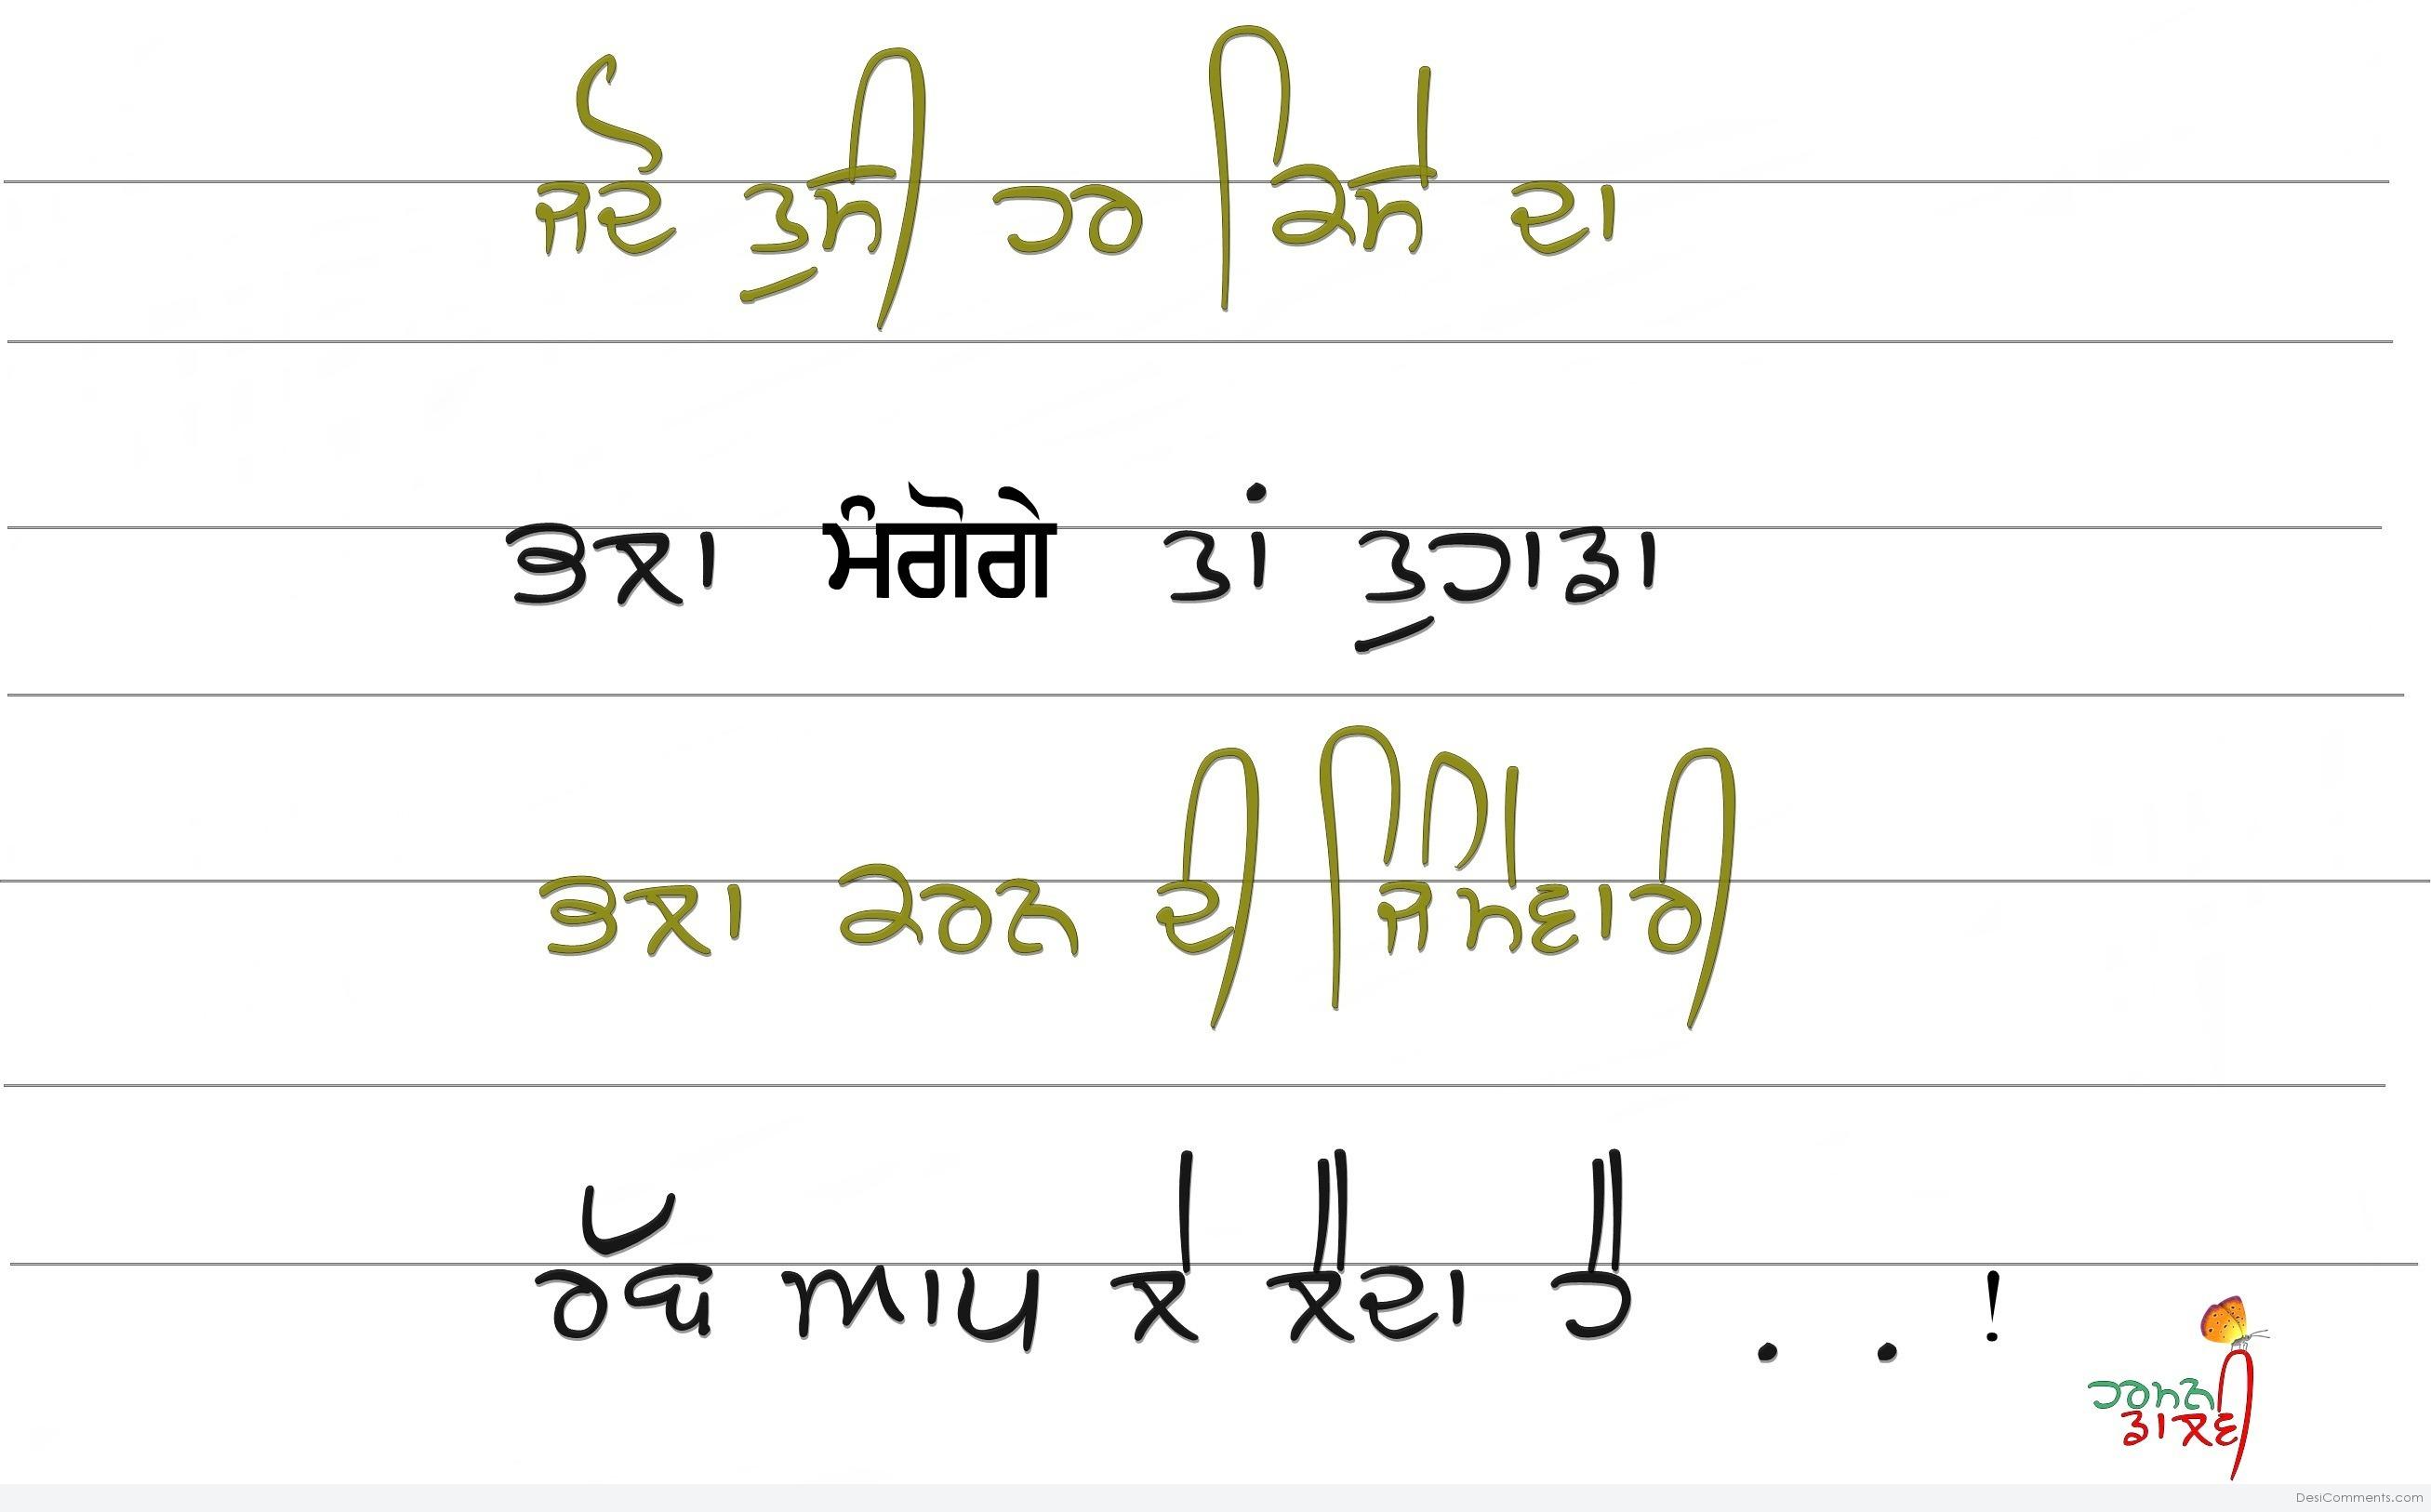 ਜਦੋਂ ਤੁਸੀ ਹਰ ਕਿਸੇ ਦਾ
ਭਲਾ ਮੰਗੋਗੇ ਤਾਂ ਤੁਹਾਡਾ
ਭਲਾ ਕਰਨ ਦੀ ਜਿੰਮੇਵਾਰੀ
ਰੱਬ ਆਪ ਲੈ ਲੈਂਦਾ ਹੈ . . !
ਹਰਮਨ
DesiComments.com